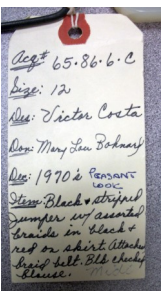 Acq# 65.86.6.C
Size: 12
Des: Victor Costa
Don: Mary Lou Bohnard
Dec: 1970's PEASANT
LOOK
Item: Black & stripped
jumper w/ assorted
braids in black &
red on skirt. Attached
braid belt. Blk checked
blouse.